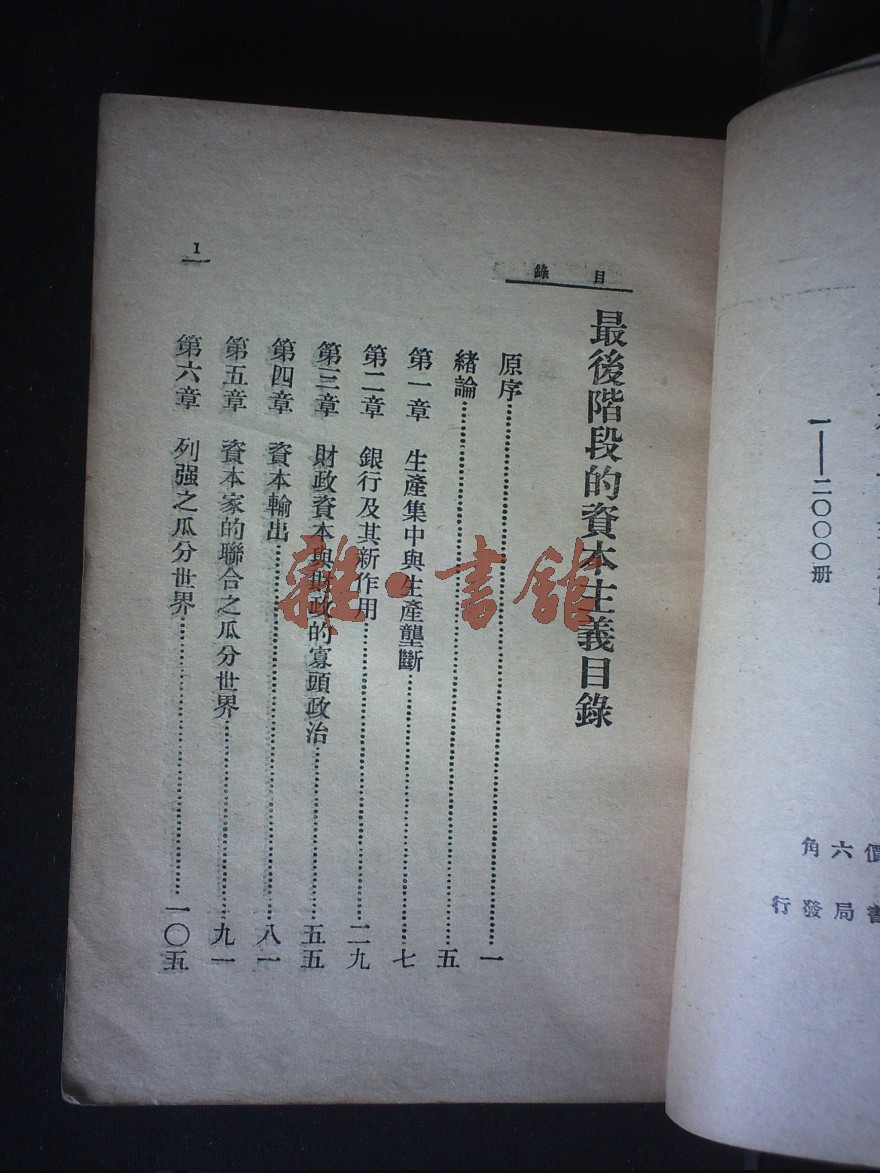 一——二〇〇〇册
價六角
書局發行
目錄
最後階段的資本主義目錄
原序……一
緒論……五
第一章 生產集中與生產壟斷……七
第二章 銀行及其新作用……二九
第三章 財政資本與財政的寡頭政治……五五
第四章 資本輸出……八一
第五章 資本家的聯合之瓜分世界……九一
第六章 列强之瓜分世界……一〇五
1
雜·書館